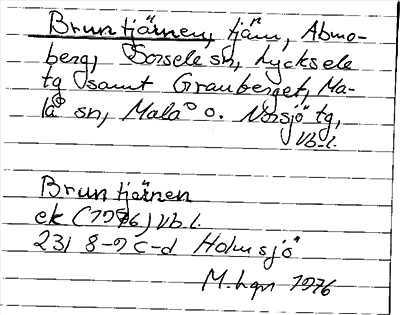 Bruntjärnen, tjärn, Abmo-
berg, Sorsele sn, Lycksele
tg samt Granberget, Ma-
lå sn, Malå o. Norsjö tg,
Vb-l.
Bruntjärnen
ek (1976) Vb.l.
23I 8-9 c-d Holmsjö
M.hgn 1976